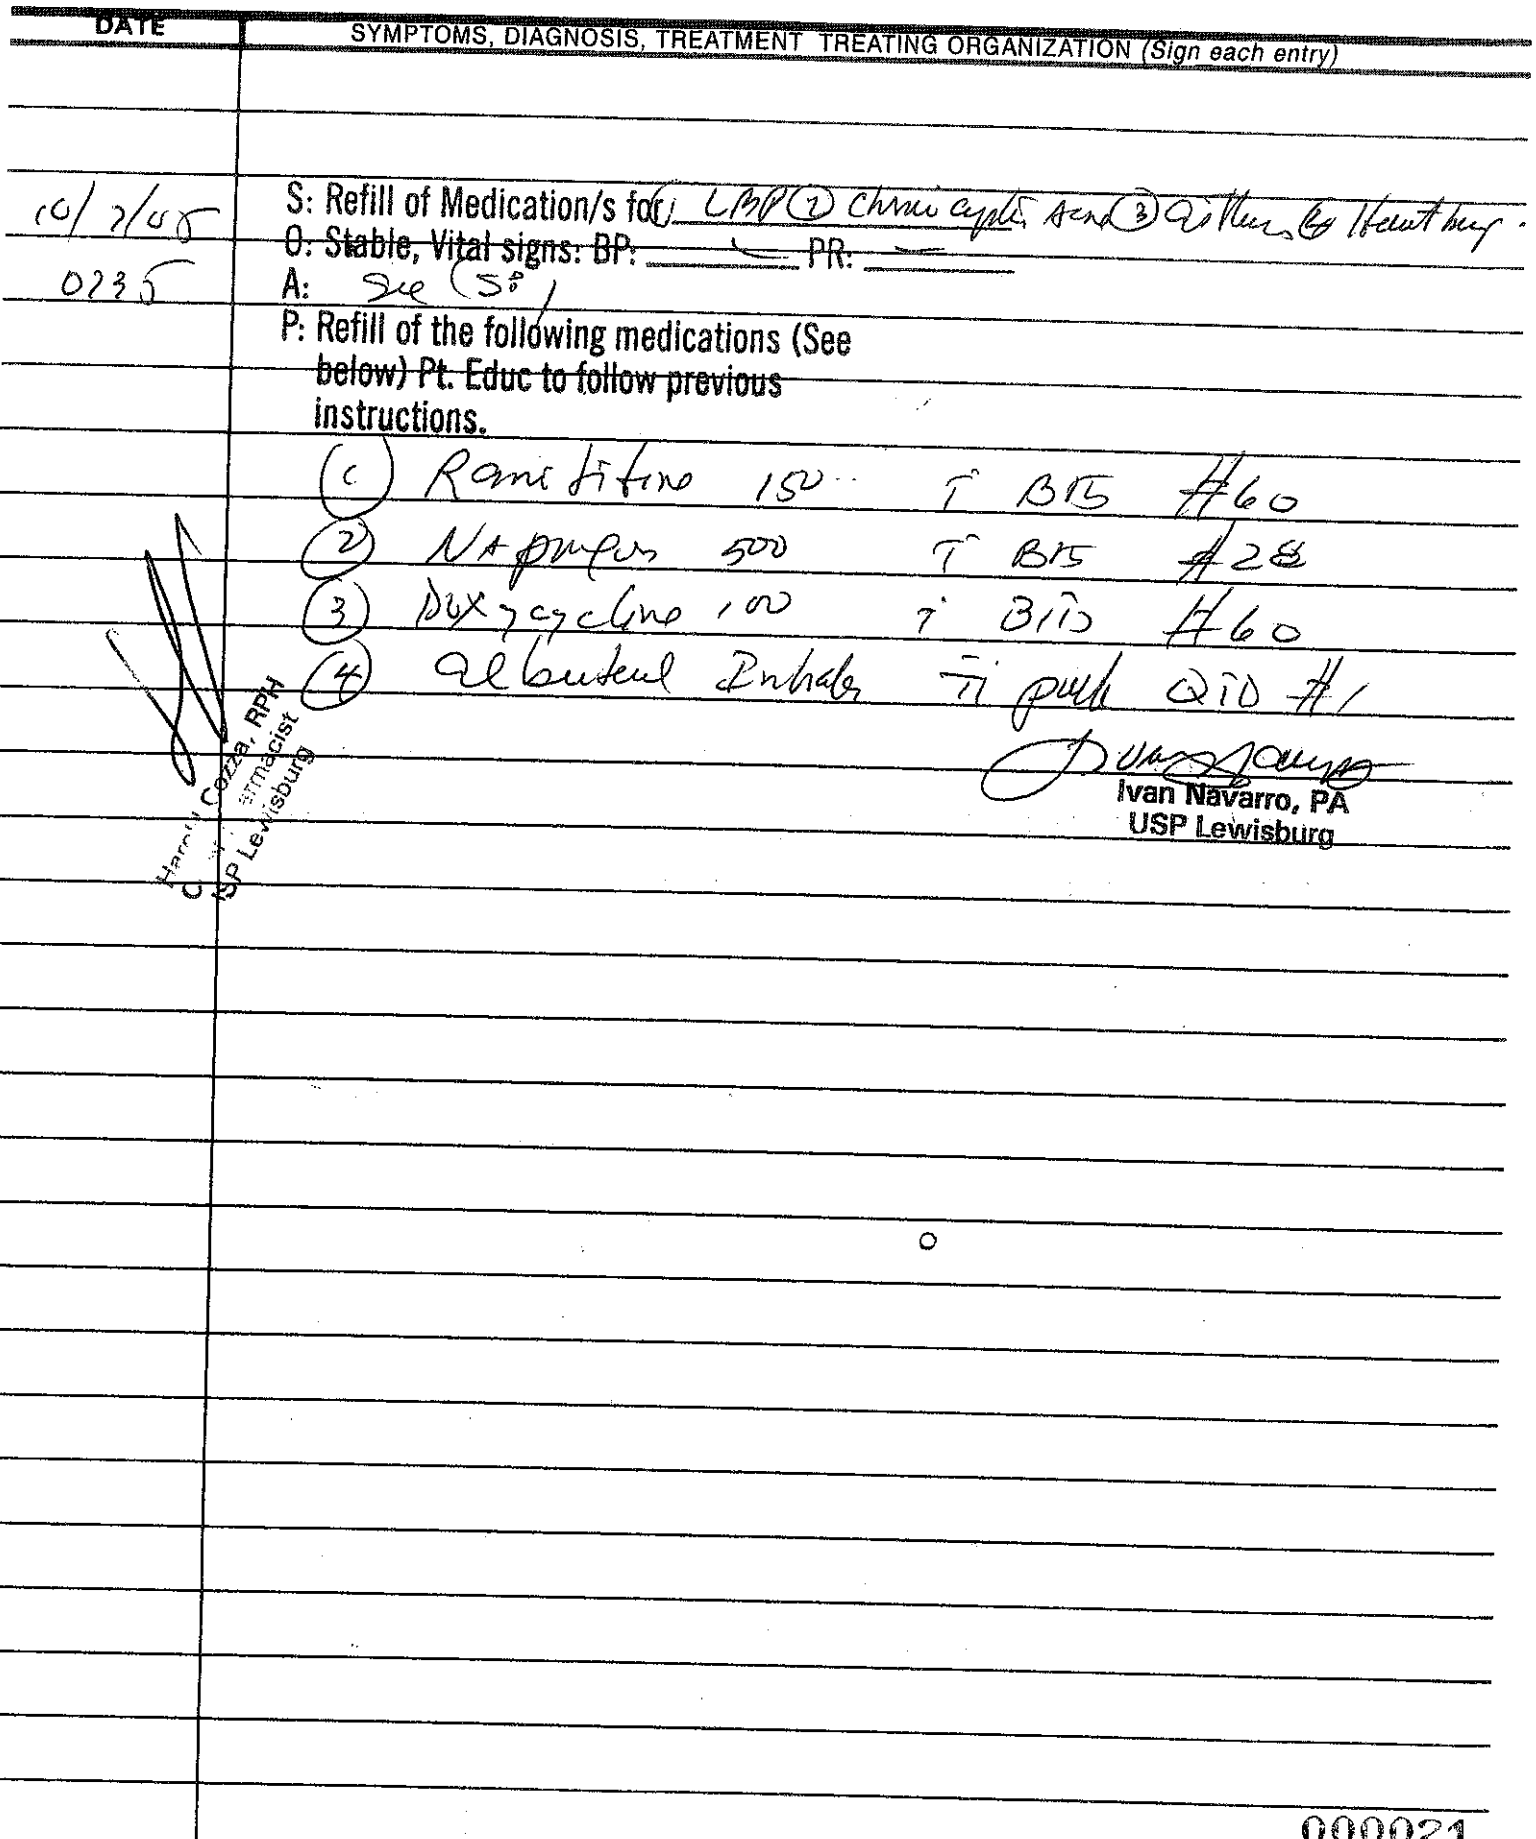 DATE SYMPTOMS, DIAGNOSIS, TREATMENT TREATING ORGANIZATION (Sign each entry)
S: Refill of Medication/s for LBP (2) Chronic Acne (3) (4)
O: Stable, Vital signs: BP: PR:
0735 A: See (S:)
P: Refill of the following medications (See
below) Pt. Educ to follow previous
instructions.
(1) Ranitidine 150 T BID #60
(2) Naproxen 500 T BID #28
(3) Doxycycline 100 T BID #60
(4) albuterol Inhaler puff QID #1
Ivan Navarro, PA
USP Lewisburg
Cozza, RPH
Lewisburg
000021